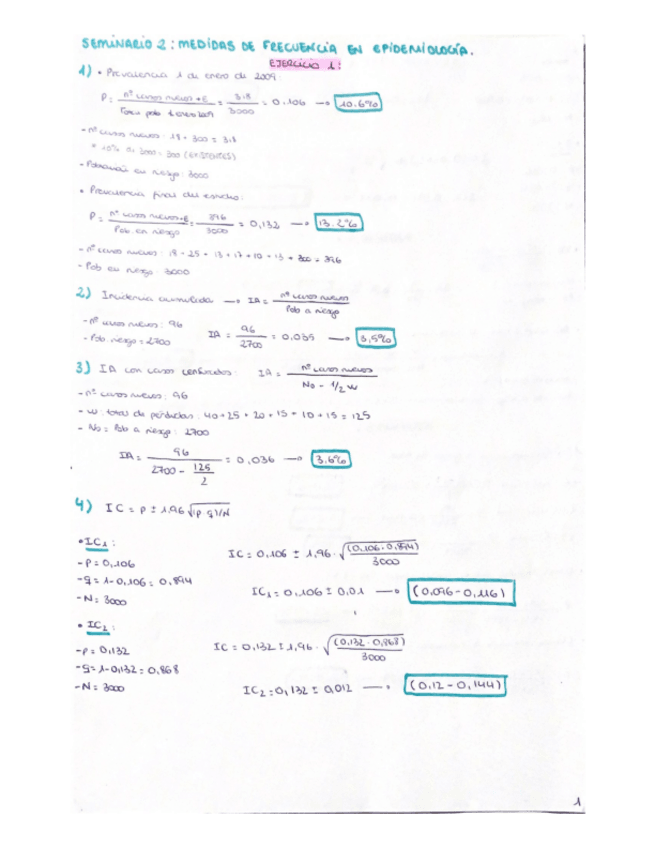 SEMINARIO 2: MEDIDAS DE FRECUENCIA EN EPIDEMIOLOGÍA.
EJERCICIO 1:
1) • Prevalencia 1 de enero de 2009:
P = nº casos nuevos + E / Total pobl 1 enero 2009 = 318 / 3000 = 0.106 → 10.6%
- nº casos nuevos: 18 + 300 = 318
* 10% de 3000 = 300 (EXISTENTES)
- Población en riesgo: 3000
• Prevalencia final del estudio:
P = nº casos nuevos+E / Pob. en riesgo = 396 / 3000 = 0,132 → 13.2%
- nº casos nuevos: 18 + 25 + 13 + 17 + 10 + 13 + 300 = 396
- Pob en riesgo: 3000
2) Incidencia acumulada → IA = nº casos nuevos / Pob a riesgo
- nº casos nuevos: 96
- Pob. riesgo = 2700
IA = 96 / 2700 = 0.035 → 3,5%
3) IA con casos censurados: IA = nº casos nuevos / No - 1/2 w
- nº casos nuevos: 96
- w: total de pérdidas: 40 + 25 + 20 + 15 + 10 + 15 = 125
- No = Pob a riesgo: 2700
IA = 96 / 2700 - 125/2 = 0,036 → 3.6%
4) IC = P ± 1,96 √(p·q)/N
• IC1:
- P = 0,106
- q = 1-0,106 = 0,894
- N = 3000
IC = 0,106 ± 1,96 · √(0,106·0,894) / 3000
IC1 = 0,106 ± 0,01 → (0,096 - 0,116)
• IC2:
- P = 0,132
- q = 1-0,132 = 0,868
- N = 3000
IC = 0,132 ± 1,96 · √(0,132·0,868) / 3000
IC2 = 0,132 ± 0,012 → (0,12 - 0,144)
1